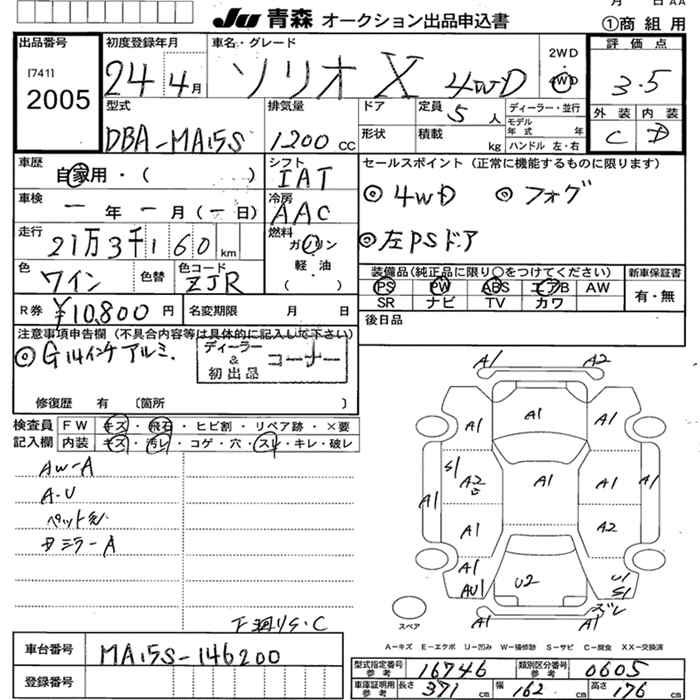 Ju 青森 オークション出品申込書
①商組用
出品番号
[741]
2005
初度登録年月
24年4月
車名・グレード
ソリオ X 4WD
2WD
4WD
評価点
3.5
外装 内装
C D
型式
DBA-MA15S
排気量
1200 cc
ドア
形状
定員 5人
積載 kg
ディーラー・並行
モデル年式 年
ハンドル 左・右
車歴
自家用・( )
シフト
IAT
セールスポイント(正常に機能するものに限ります)
◎4WD ◎フォグ
◎左PSドア
車検
一年一月(一日)
冷房
AAC
走行
21万3千160km
燃料
ガソリン
軽・油
( )
色
ワイン
色替
色コード
ZJR
装備品(純正品に限り○をつけてください)
PS PW ABS エアB AW
SR ナビ TV カワ
新車保証書
有・無
R券 ¥10,800円
名変期限 月 日
後日品
注意事項申告欄(不具合内容等は具体的に記入して下さい)
◎G14インチアルミ.
ディーラー
&
初出品
コーナー
修復歴 有 〔箇所 〕
検査員
記入欄
FW キズ・飛石・ヒビ割・リペア跡・×要
内装 キズ・汚レ・コゲ・穴・スレ・キレ・破レ
AW-A
A-U
ミラー-A
A1 A2
A1 A1 A1
S1 A2 A1 A1
A1 A1
A1 A2
A1 AU1 U2 U1 S1
A1 A1
スペア
C
A-キズ E-エクボ U-凹み W-補修跡 S-サビ C-腐食 XX-交換済
車台番号
MA15S-146200
登録番号
型式指定番号 参考 16746
類別区分番号 参考 0605
車庫証明用 参考 長さ 371cm 幅 162cm 高さ 176cm